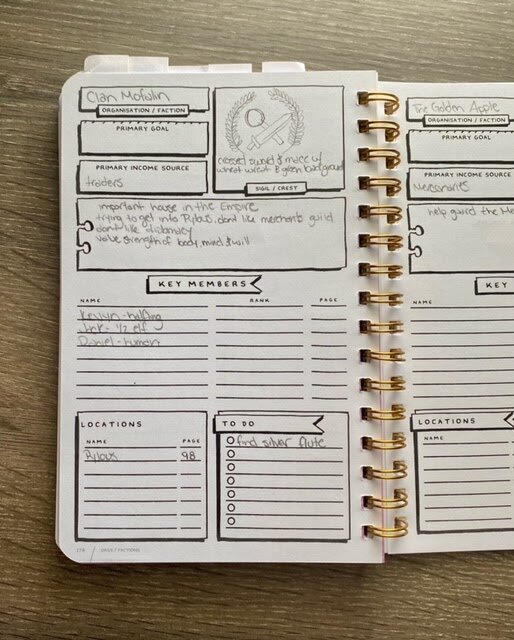 Clan Mofulin
ORGANISATION / FACTION
PRIMARY GOAL
PRIMARY INCOME SOURCE
traders
crossed sword & mace w/
wheat wreath & green background
SIGIL / CREST
important house in the Empire
trying to get into Ryloux. dont like merchants guild
dont like diplomacy
value strength of body, mind & will
KEY MEMBERS
NAME RANK PAGE
Kellyn - halfling
1/2 elf
Daniel - human
LOCATIONS
NAME PAGE
Ryloux 98
TO DO
find silver flute
174 / DATA / FACTIONS
The Golden Apple
ORGANISATION / FACTION
PRIMARY GOAL
PRIMARY INCOME SOURCE
Mercenaries
help guard the Me
KEY
NAME
LOCATIONS
NAME